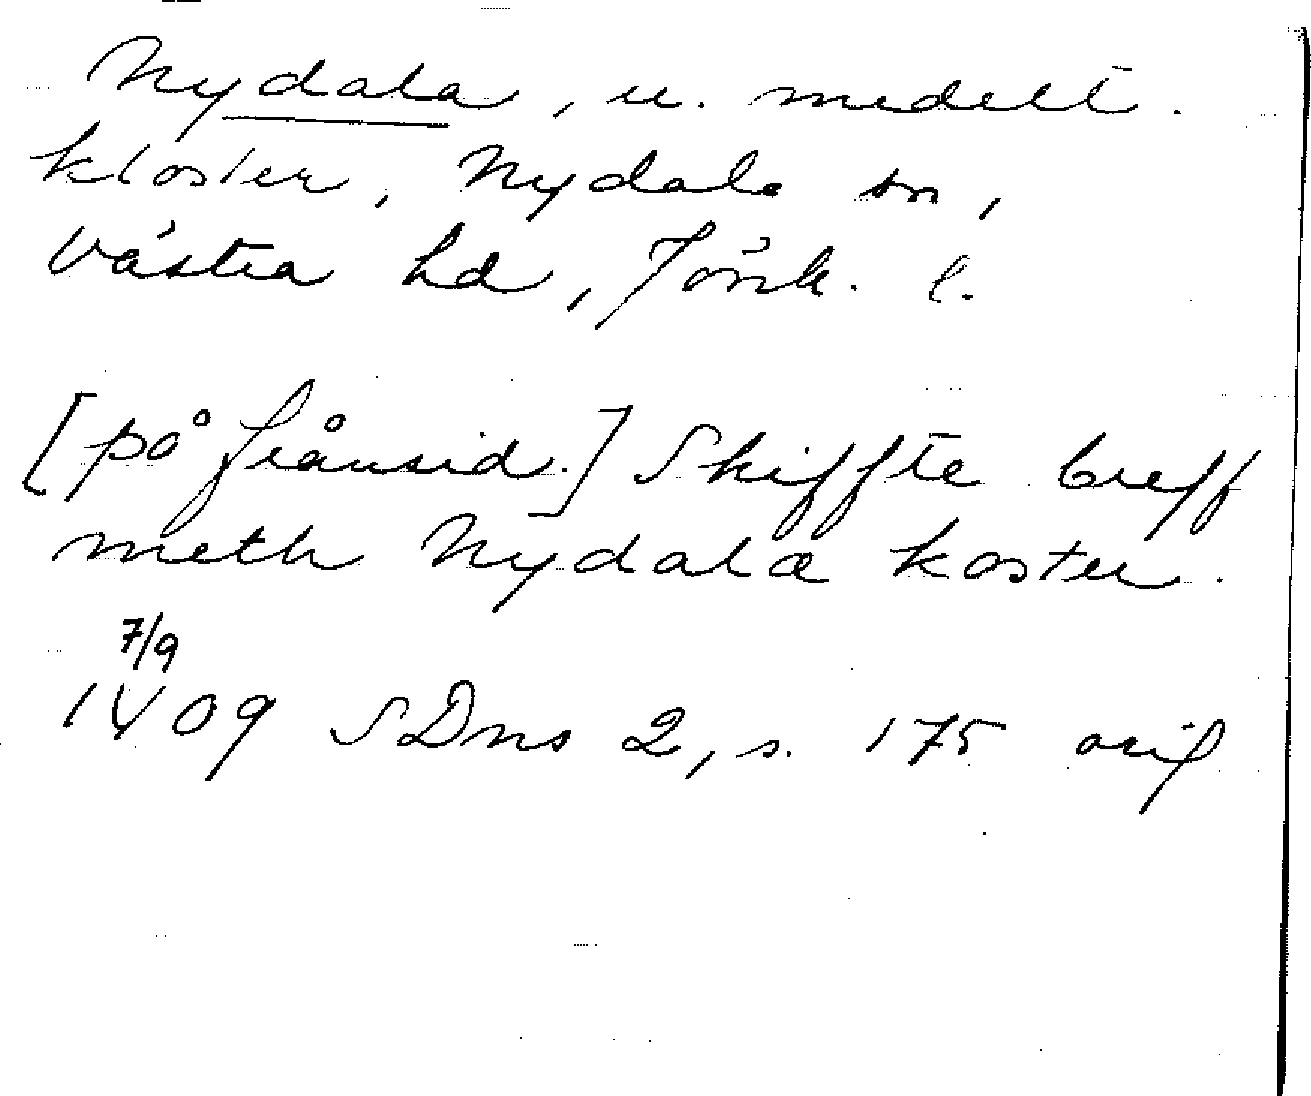 Nydala, u. medelt.
kloster, Nydala sn,
Västra hd, Jönk. l.
[på frånsid.] Skiffte breff
meth Nydala koster.
7/9
1409 SDns 2, s. 175 orig